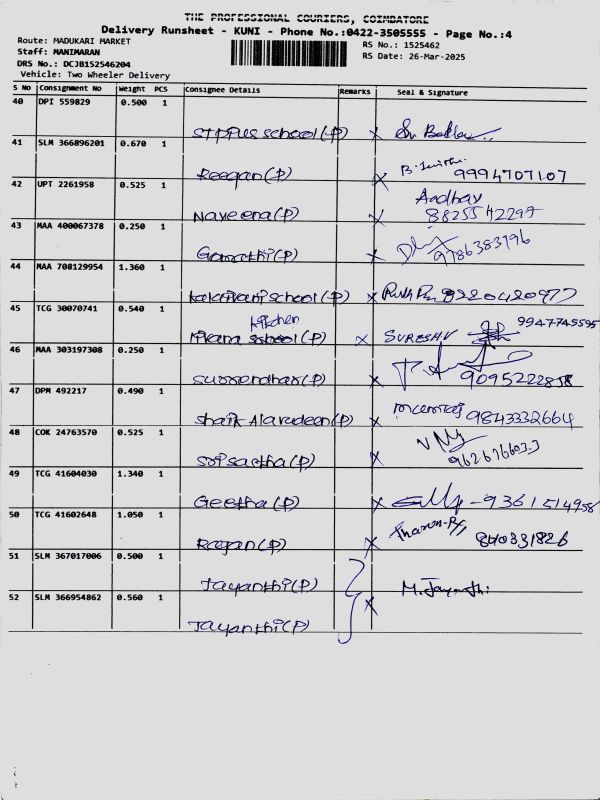 THE PROFESSIONAL COURIERS, COIMBATORE
Delivery Runsheet - KUNI - Phone No.:0422-3505555 - Page No.:4
Route: MADUKARI MARKET
RS No.: 1525462
Staff: MANIMARAN
RS Date: 26-Mar-2025
DRS No.: DCJB152546204
Vehicle: Two Wheeler Delivery
S No Consignment No Weight PCS Consignee Details Remarks Seal & Signature
40 DPI 559829 0.500 1
school (P) X
41 SLM 366896201 0.670 1
Reegan (P) X 9994707107
42 UPT 2261958 0.525 1
Naveena (P) X Aadhav
8825542297
43 MAA 400067378 0.250 1
Gomathi (P) X 9786383796
44 MAA 708129954 1.360 1
Kalaivani school (P) X 8220420977
45 TCG 30070741 0.540 1
kitchen
Kirana school (P) X SURESH V 9947745595
46 MAA 303197308 0.250 1
Surrendhar (P) X 9095222858
47 DPM 492217 0.490 1
Shaik Alavudeen (P) X 9843332664
48 COK 24763570 0.525 1
(P) X
49 TCG 41604030 1.340 1
Geetha (P) X - 9361514958
50 TCG 41602648 1.050 1
Ragan (P) X 840331826
51 SLM 367017006 0.500 1
Jayanthi (P)
M. Jayanthi
52 SLM 366954862 0.560 1
Jayanthi (P) X